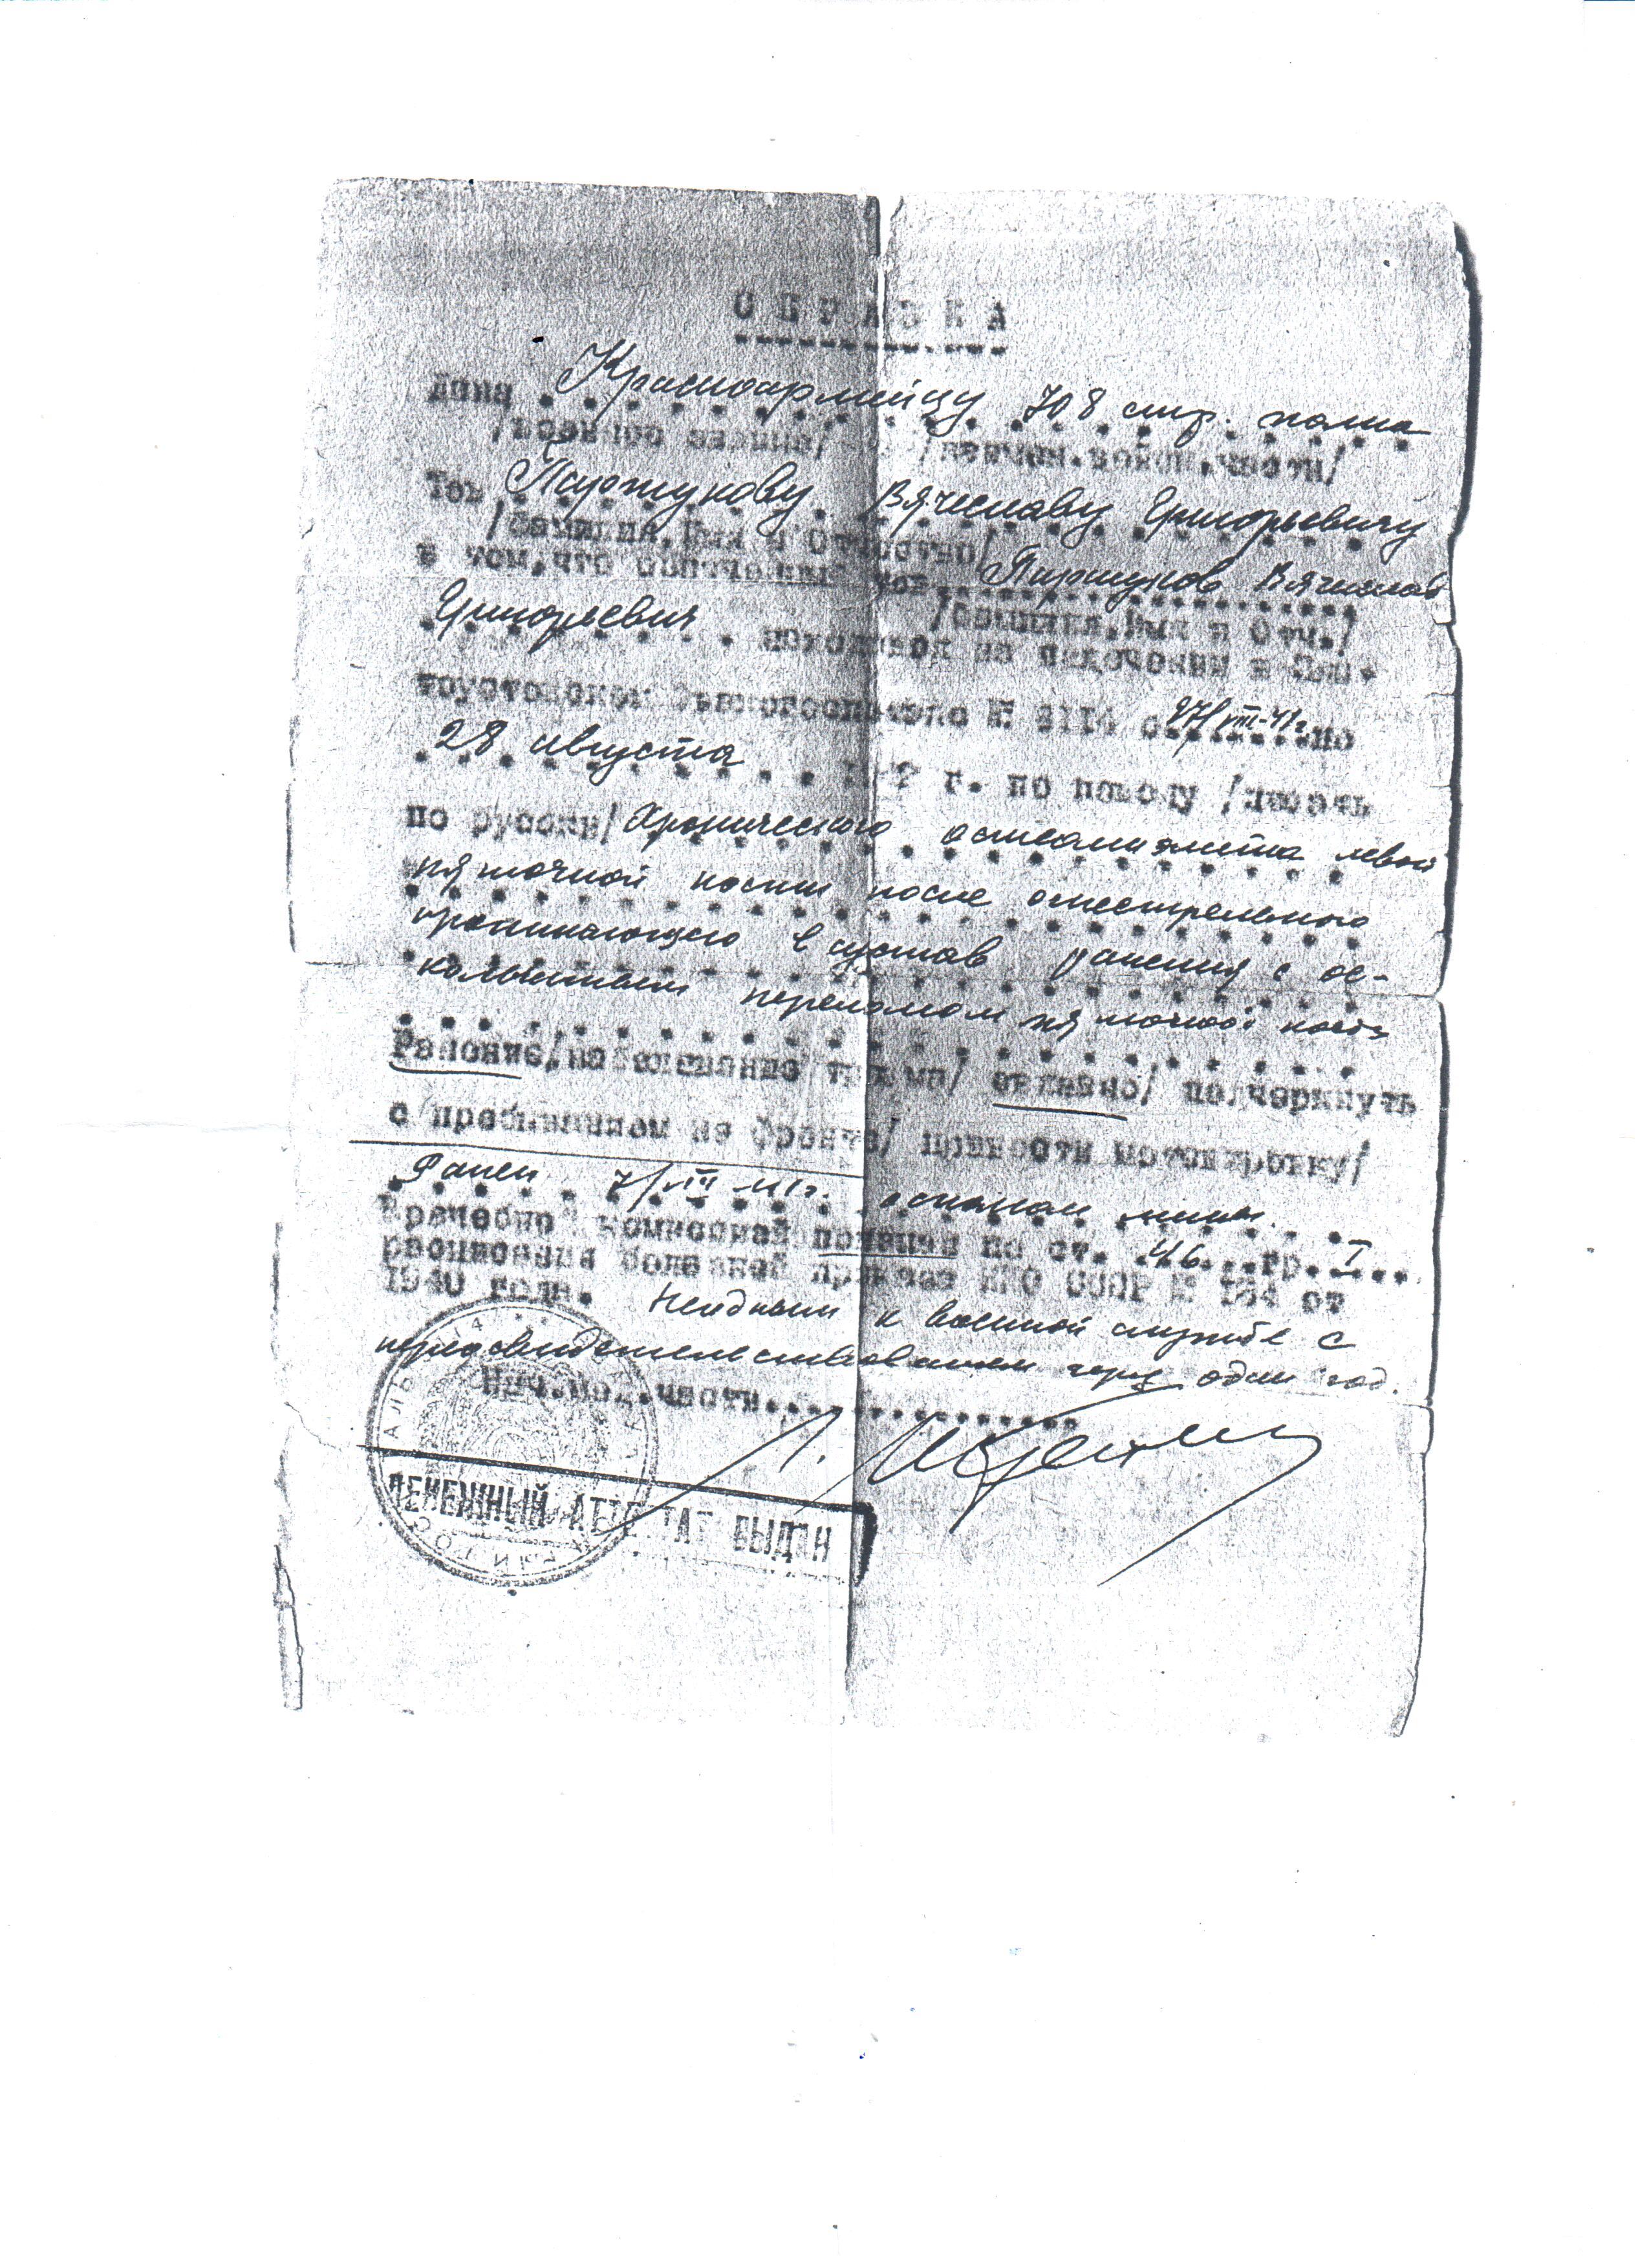 СПРАВКА
Дана Красноармейцу 708 стр. полка
/военное звание/ /наимен.войск.части/
Тов. Паршукову Вячеславу Григорьевичу
/Фамилия, Имя и Отчество/
в том, что
Паршуков Вячеслав
Григорьевич /Фамилия, Имя и Отч./
находился на излечении в Зла-
тоустовском Эвакогоспитале № 3114 с 27/VIII-41г. по
28 августа 194? г. по поводу /писать
по русски/ Хронического остеомиэлита левой
пяточной кости после огнестрельного
проникающего в сустав ранения с ос-
кольчатым переломом пяточной кости
Ранение, заболевание связано/ подчеркнуть
с пребыванием на фронте/
Ранен 7/VIII 41г. осколком мины.
Врачебной комиссией признан по ст. 46 гр. I
расписания болезней приказа НКО СССР № 184 от
1940 года. Негодным к военной службе с
переосвидетельствованием через один год.
Нач. мед. части
ДЕНЕЖНЫЙ АТТЕСТАТ ВЫДАН